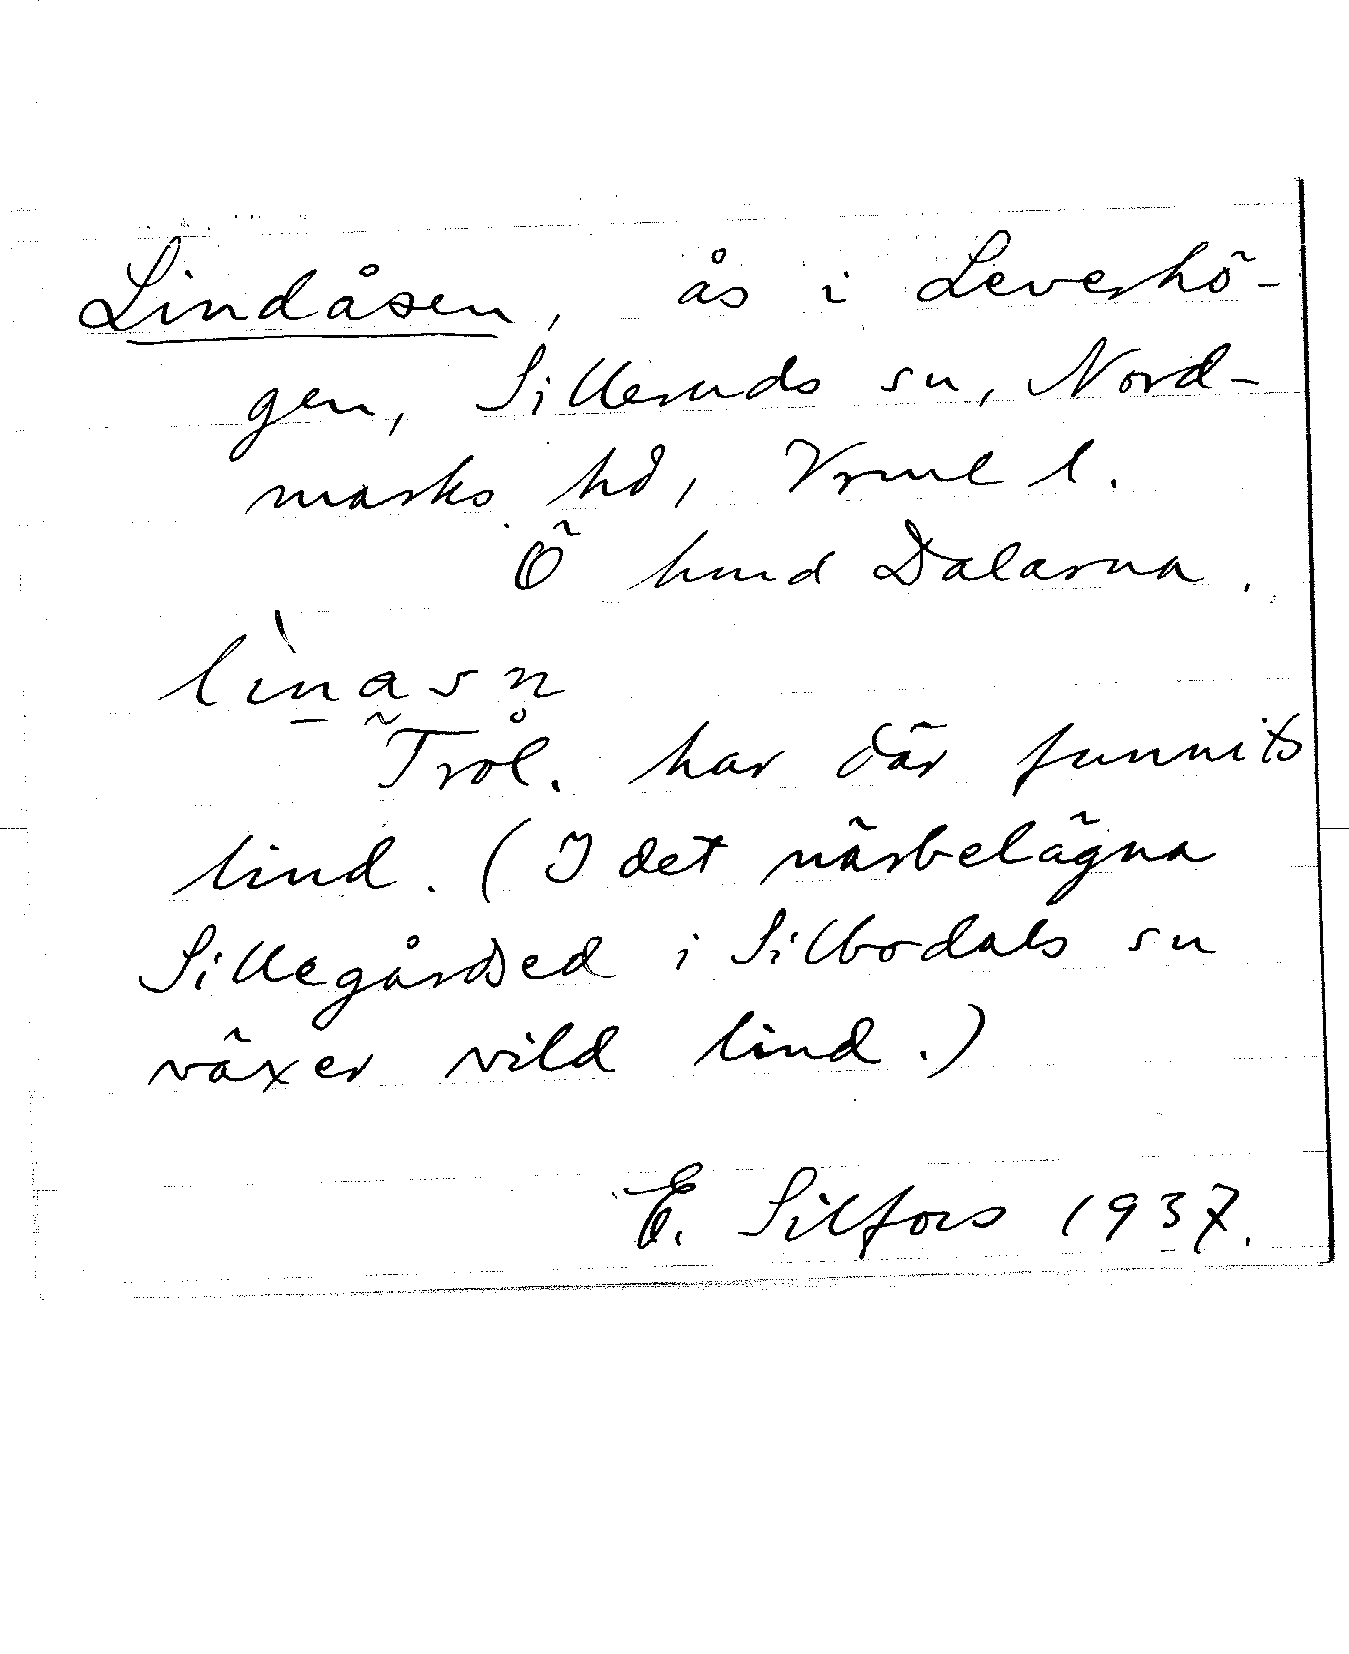 Lindåsen, ås i Leverhö-
gen, Silleruds sn, Nord-
marks hd, Vrml l.
Ö hmd Dalarna.
lìna̰sn̥
Trol. har där funnits
lind. (I det närbelägna
Sillegårdsed i Silbodals sn
växer vild lind.)
E. Silfors 1937.